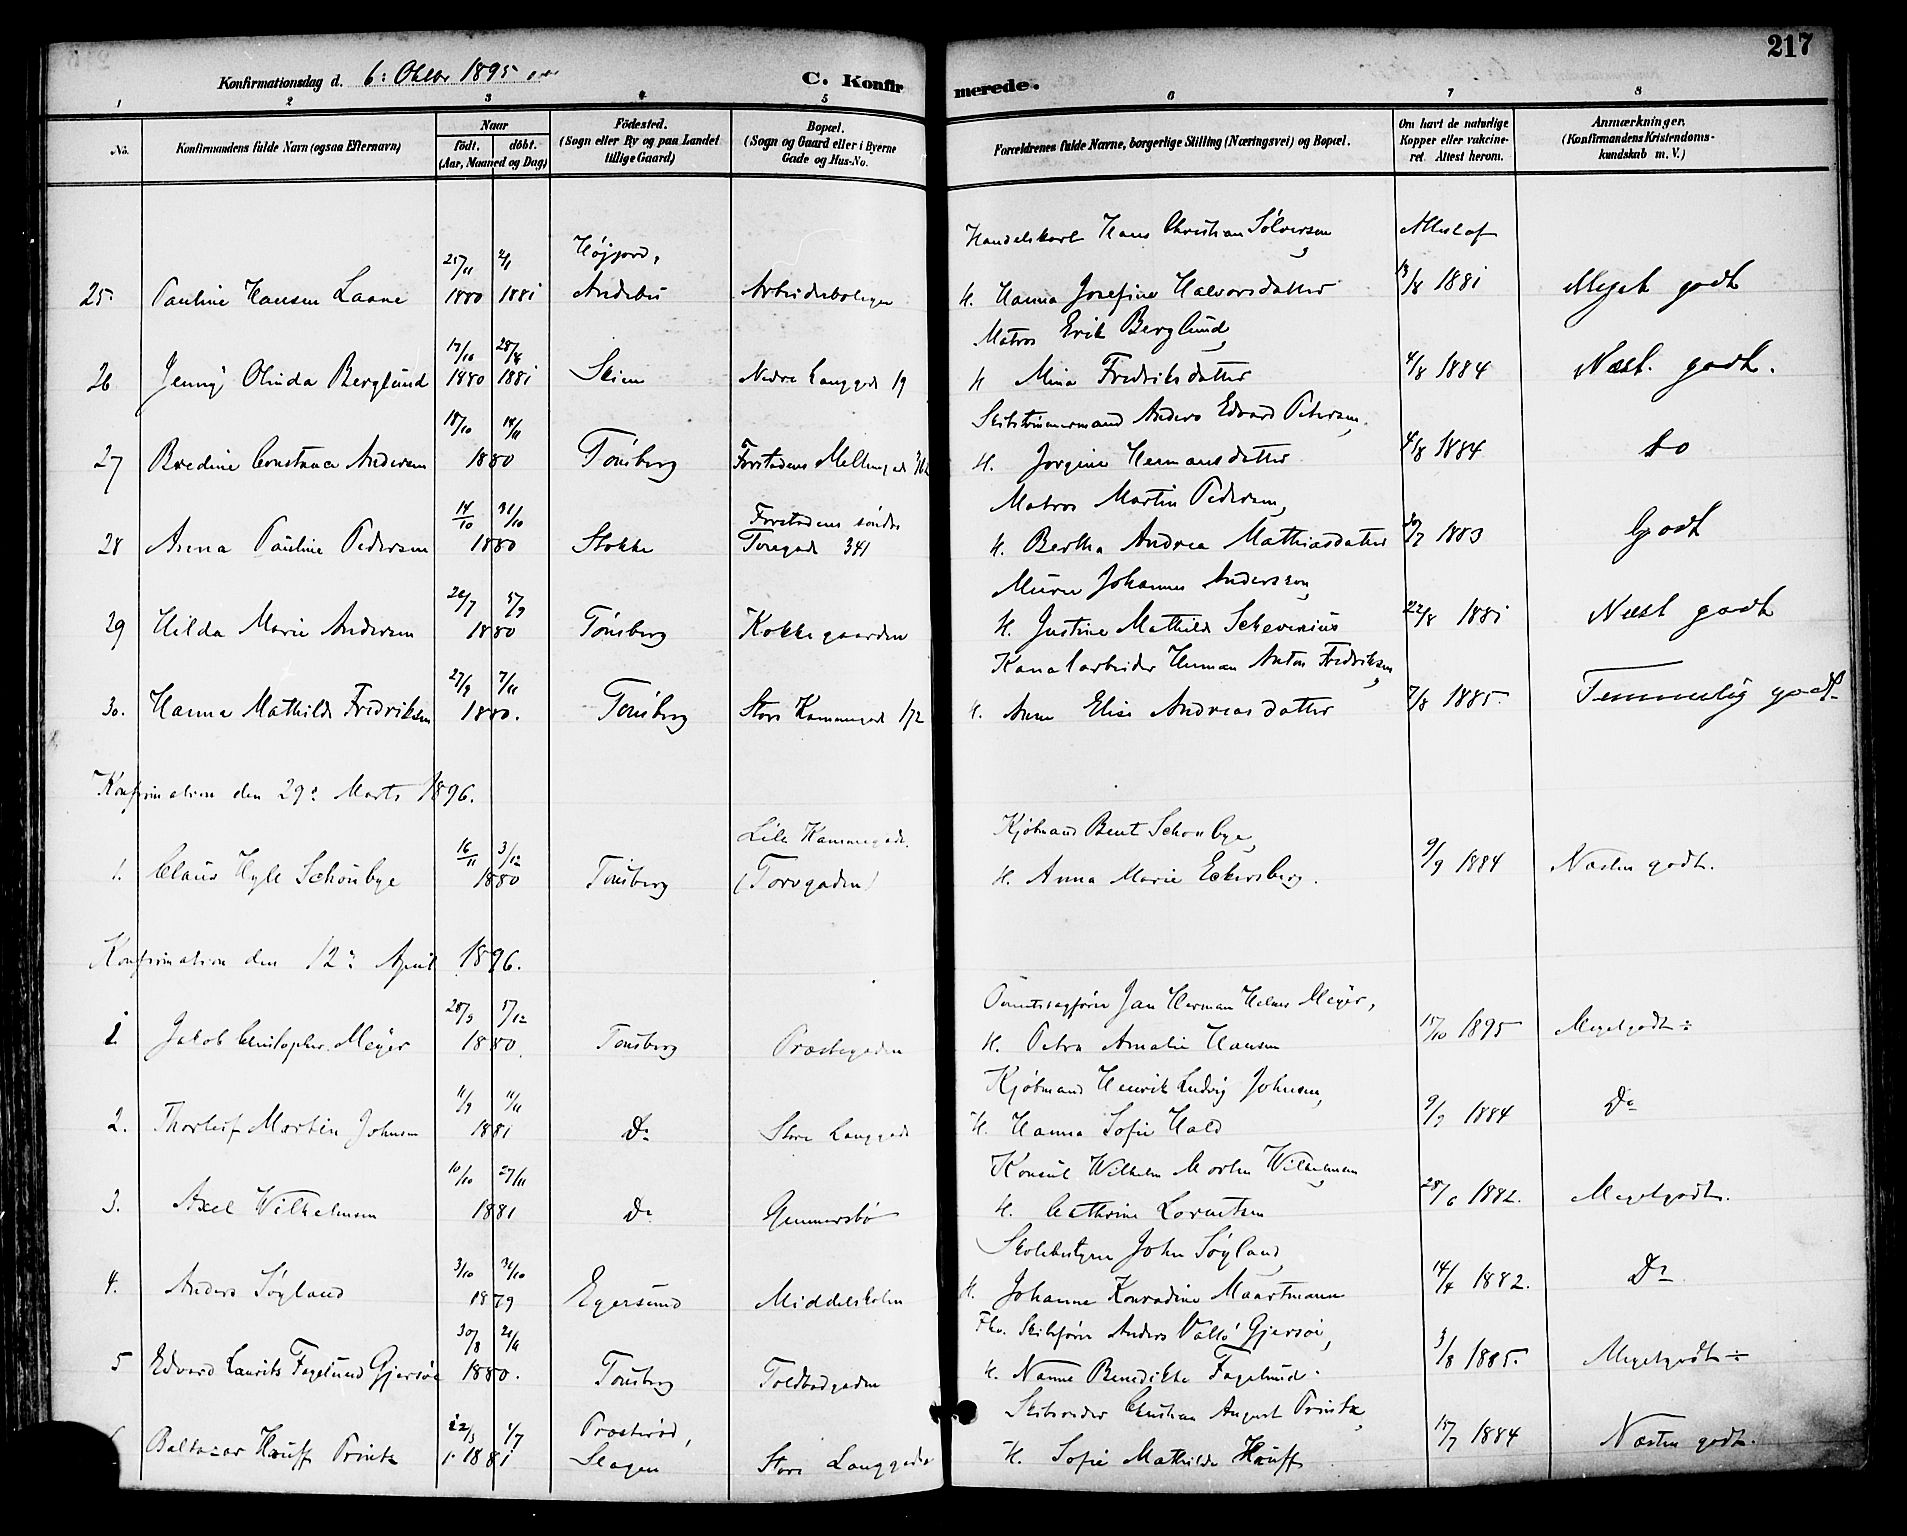 217
Konfirmationsdag d. 6: Oktbr 1895
C. Konfirmerede.
1 2 3 4 5 6 7 8
No. Konfirmandens fulde Navn (ogsaa Efternavn) Naar født. døbt. (Aar, Maaned og Dag) Fødested. (Sogn eller By og paa Landet tillige Gaard) Bopæl. (Sogn og Gaard eller i Byerne Gade og Hus-No. Forældrenes fulde Navne, borgerlige Stilling (Næringsvei) og Bopæl. Om havt de naturlige Kopper eller vakcineret. Attest herom. Anmærkninger. (Konfirmandens Kristendomskundskab m. V.)
Højjord, Hans Christian Sølversen Attest af
25 Pauline Hansen Laane 1880 2/1 1881 Andebu Arbeiderboligen H. Hanna Josefine Halvorsdatter 13/8 1881 Meget godt
Matros Erik Berglund,
26 Jenny Olinda Berglund 1880 1881 Skien Nedre Langgade 19 H. Mina Fredriksdatter 4/8 1884 Næst. godt.
Skibstømmermand Anders Edvard Petersen,
27 Bredine Constance Andersen 1880 Tønsberg Forstadens H. Jørgine Hermansdatter 1884 do
14/10 31/10 Forstadens søndre Matros Martin Pedersen,
28 Anna Pauline Pedersen 1880 Stokke Toregade 341 H. Bertha Andrea Mathiasdatter 1883 Godt
Murer Johannes Andersson,
29 Hilda Marie Andersen 1880 Tønsberg Kokkegaarden H. Justine Mathilde Schevenius 22/8 1881 Næst godt
27/9 7/11 Kanalarbeider Herman Anton Fredriksen,
30. Hanna Mathilde Fredriksen 1880. Tønsberg Store Kammegade 172 H. Anne Elise Andreasdatter 7/8 1885. Temmelig godt
Konfirmation den 29: Marts 1896.
16/11 3/12 Lille Kammegade. Kjøbmand Bent Schønbye,
1. Claus Hyll Schønbye 1880 Tønsberg (Torvgaden) H. Anna Marie Eckersberg. 9/9 1884 Næsten godt.
Konfirmation den 12: April 1896.
28/9 5/12 Overretssagfører Jan Herman Helmer Meyer,
1 Jakob Christopher Meyer 1880. Tønsberg Præstegaden H. Petra Amalie Hansen 15/10 1895 Megetgodt ÷
11/9 11/11 Kjøbmand Henrik Ludvig Johnsen,
2. Thorleif Martin Johnsen 1881 Do Store Langgade H. Hanna Sofie Hald 9/9 1884 Do
10/10 27/11 Konsul Wilhelm Morten Wilhelmsen
3. Axel Wilhelmsen 1881 Do Gunnarsbø H. Cathrine Lorentsen 28/6 1882. Megetgodt.
3/10 31/10 Skolebestyrer John Søyland,
4. Anders Søyland 1879 Egersund Middelskolen H. Johanne Konradine Maartmann 14/4 1882. Do
30/8 21/9 Fhv. Skibsfører Anders Vallø Gjersøe,
5 Edvard Laurits Fagelund Gjersøe 1880. Tønsberg Toldbodgaden H. Nanne Benedikte Fagelund. 3/8 1885. Megetgodt ÷
22/3 1/7 Præsterød, Skibsreder Christian August Printz,
Baltazar Hauff Printz 1881 Slagen Store Langgade H. Sofie Mathilde Hauff 15/7 1884 Næsten godt.